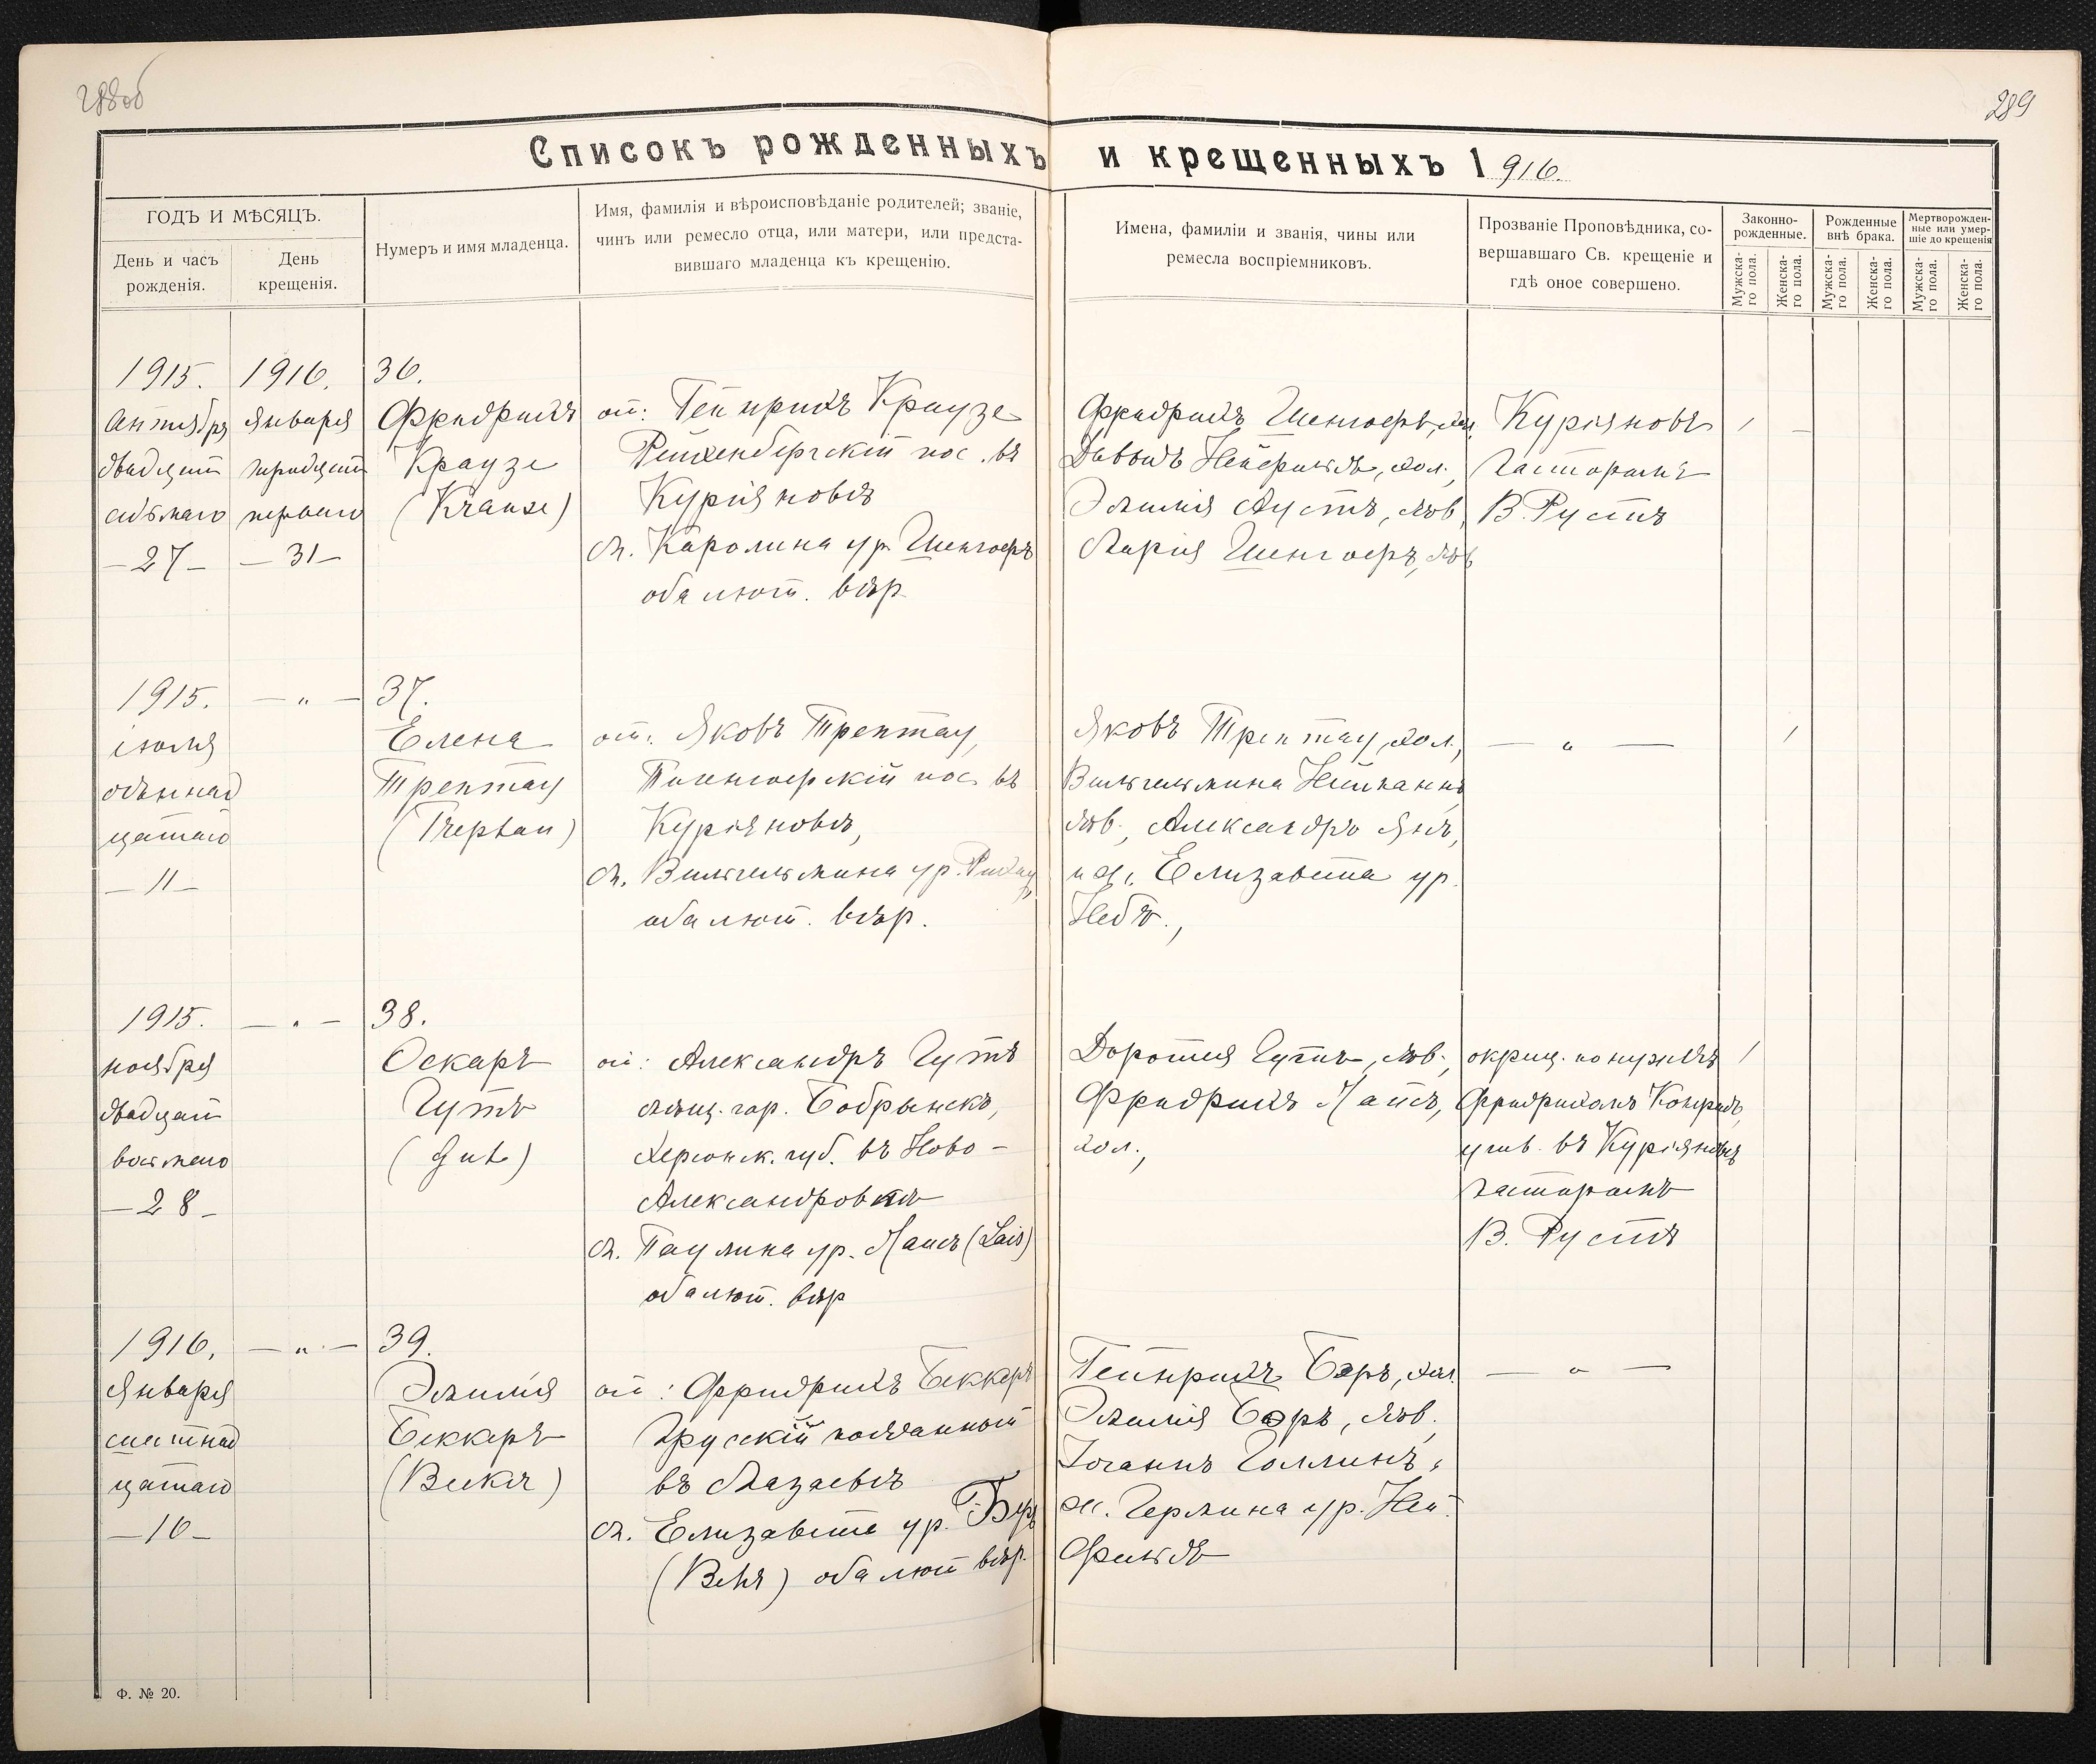 288об
289
Списокъ рожденныхъ и крещенныхъ 1916.
ГОДЪ И МѢСЯЦЪ.
День и часъ рожденія.
День крещенія.
Нумеръ и имя младенца.
Имя, фамилія и вѣроисповѣданіе родителей; званіе,
чинъ или ремесло отца, или матери, или предста-
вившаго младенца къ крещенію.
Имена, фамиліи и званія, чины или
ремесла воспріемниковъ.
Прозваніе Проповѣдника, со-
вершавшаго Св. крещеніе и
гдѣ оное совершено.
Законно-
рожденные.
Рожденные
внѣ брака.
Мертворожден-
ные или умер-
шіе до крещенія
Мужска-
го пола.
Женска-
го пола.
Мужска-
го пола.
Женска-
го пола.
Мужска-
го пола.
Женска-
го пола.
1915.
двадцат
седьмаго
— 27 —
1916.
января
тридцат
перваго
— 31 —
36.
Фридрихъ
Краузе
(Krause)
от: Гейнрихъ Краузе
Рейхенбергскій пос. въ
Куріяновѣ
м. Каролина ур.
оба лют. вѣр.
Фридрихъ
Давидъ Нейфельдъ, хол.,
Эмилія Аустъ, дѣв.
Марія
Куріяновъ
пасторомъ
В. Рустъ
1
1915.
іюля
одиннад
цатаго
— 11 —
— „ —
37.
Елена
Трептау
(Treptau)
от: Яковъ Трептау,
пос. въ
Куріяновѣ,
м. Вильгельмина ур.
оба лют. вѣр.
Яковъ Трептау, хол.,
Вильгельмина Нейманнъ
дѣв., Александръ Янъ,
Елизавета ур.
— „ —
1
1915.
ноября
двадцат
восьмаго
— 28 —
— „ —
38.
Оскаръ
Гутъ
(Gut)
от: Александръ Гутъ
мѣщ. гор. Бобрынскъ,
Херсонск. губ. въ Ново-
Александровкѣ
м. Паулина ур. Лаисъ (Lais)
оба лют. вѣр
Доротея Гутъ, дѣв.,
Фридрихъ Лаисъ,
хол.,
окрещ. по нуждѣ
Фридрихомъ Конрадъ,
утв. въ Куріяновѣ
пасторомъ
В. Рустъ
1
1916.
января
шестнад
цатаго
— 16 —
— „ —
39.
Эмилія
Беккеръ
(Beker)
от: Фридрихъ Беккеръ
Прусскій подданный
въ Мазаевѣ
м. Елизавета ур. Бэръ
(Behr) оба лют. вѣр.
Гейнрихъ Бэръ, хол.
Эмилія Бэръ, дѣв.
Іоганнъ Голлингъ,
ж. Гермина ур. Ней-
фельдъ
— „ —
Ф. № 20.